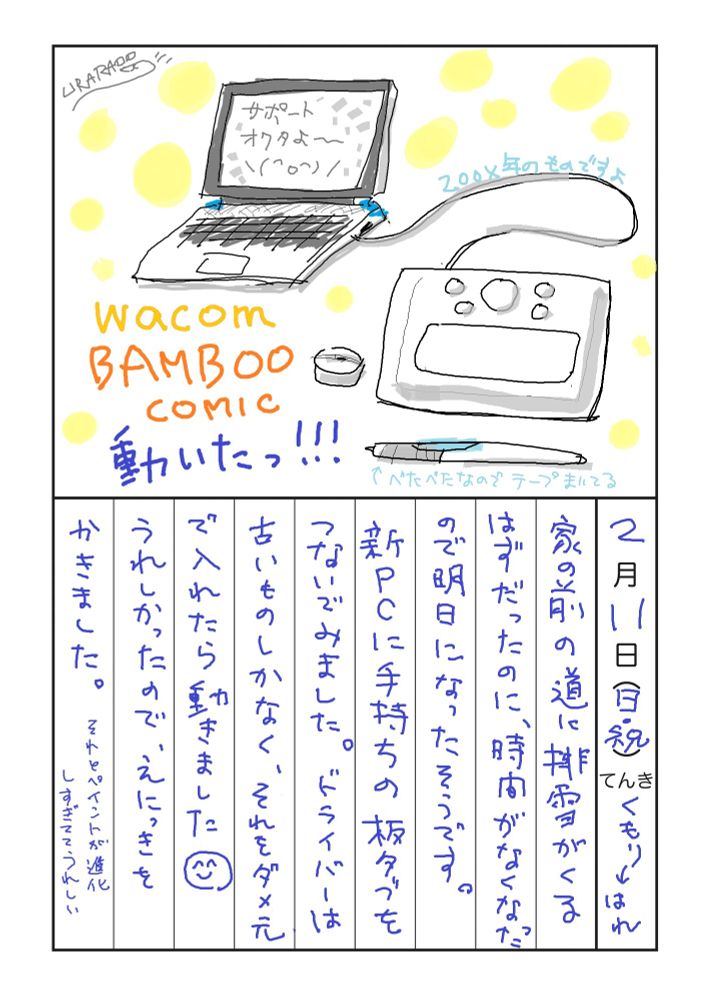 URARA
サポート
オワタよ〜
\(^o^)/
200X年のものですよ
wacom
BAMBOO
COMIC
動いたっ!!!
↑べたべたなのでテープまいてる
2月11日(日・祝)てんきくもり→はれ
家の前の道に排雪がくる
はずだったのに、時間がなくなった
ので明日になったそうです。
新PCに手持ちの板タブを
つないでみました。ドライバーは
古いものしかなく、それをダメ元
で入れたら動きました
うれしかったので、えにっきを
かきました。
それとペイントが進化
しすぎててうれしい